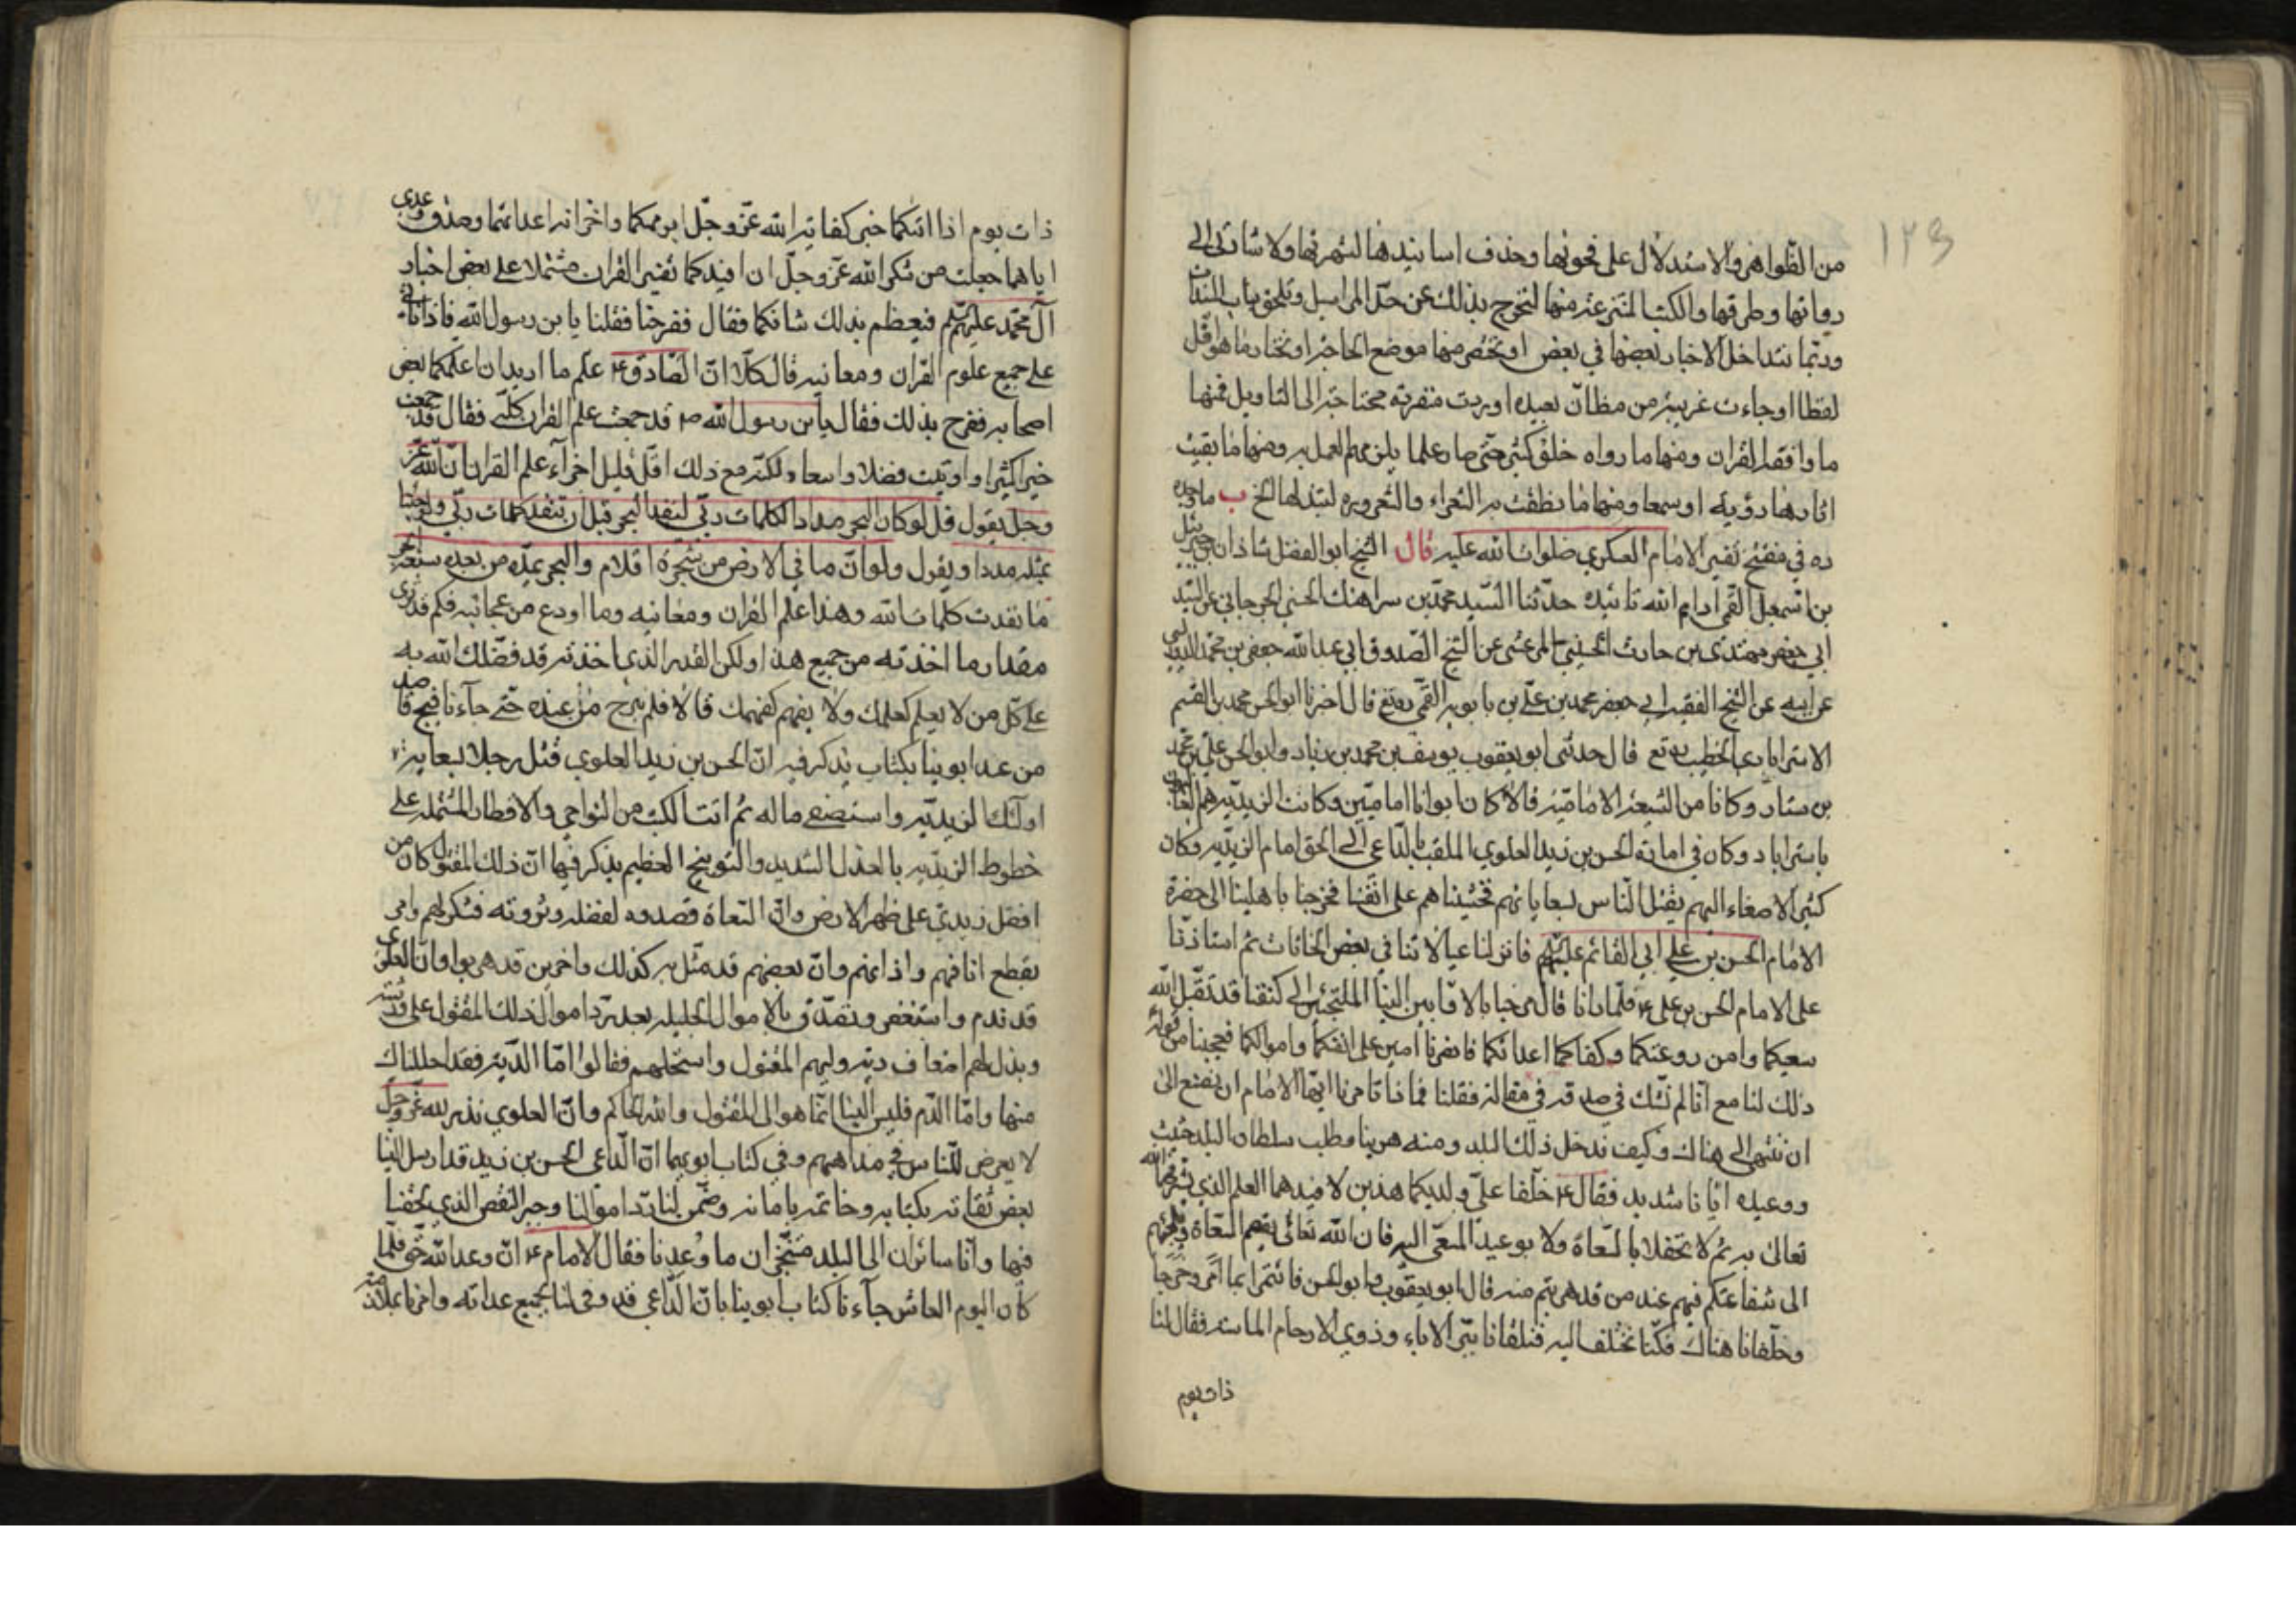 ١٢٣
من الظواهر والاستدلال على فحونها وحذف اسانيدها لشهرتها ولاشارتى الى
رواتها وطرقها والكتب المنتزعة منها لتخرج بذلك عن حد المراسيل وتلحق بباب المسندات
وربما تتداخل الاخبار بعضها في بعض او نختصر منها موضع الحاجة او نختار ما هو اقل
لفظا او جاءت غريبة من مظان بعيده او وردت متفرقه محتاجة الى التاويل فمنها
ما وافقه القران ومنها ما رواه خلق كثير حتى صار علما يلزمهم العمل به ومنها ما بقيت
اثارها رؤيه او سمعا ومنها ما نطقت به الشعراء والشعروره لتبذلها الخ ب ما وجده
ره في مفتتح تفسير الامام العسكري صلوات الله عليه قال الشيخ ابو الفضل شاذان بن جبرئيل
بن اسمعيل القمي ادام الله تائيده حدثنا السيد محمد بن سراهنك الحسني الجرجاني عن السيد
ابي جعفر مهتدى بن حارث الحسيني المرعشي عن الشيخ الصدوق ابي عبد الله جعفر بن محمد الدوريستي
عن ابيه عن الشيخ الفقيه ابي جعفر محمد بن علي بن بابويه القمي ره قال اخبرنا ابو الحسن محمد بن القسم
الاسترابادي الخطيب ره قال حدثنى ابو يعقوب يوسف بن محمد بن زياد وابو الحسن علي بن محمد
بن سيار وكانا من الشيعة الامامية قالا كان ابوانا اماميين وكانت الزيدية هم الغالبون
باستراباد وكان في امارة الحسن بن زيد العلوي الملقب بالداعي الى الحق امام الزيدية وكان
كثير الاصغاء اليهم يقتل الناس بسعاياتهم فخشيناهم على انفسنا فخرجنا باهلينا الى حضرة
الامام الحسن بن علي ابي القائم عليهم فانزلنا عيالاتنا في بعض الخانات ثم استاذنا
على الامام الحسن بن على ع فلما رانا قال مرحبا بالاوابين الينا الملتجئين الى كنفنا قد تقبل الله
سعيكما وامن روعتكما وكفاكما اعدائكما فانصرفا آمنين على انفسكما واموالكما فعجبنا من قوله
ذلك لنا مع انا لم نشك في صدقه في مقاله فقلنا فماذا تامرنا ايها الامام ان نصنع الى
ان ننتهي الى هناك وكيف ندخل ذلك البلد ومنه هربنا وطلب سلطان البلد حثيث
ووعيده ايانا شديد فقال ع خلفا علي ولديكما هذين لافيدهما العلم الذي يشرفهما الله
تعالى به ثم لا تحفلا بالسعاة ولا بوعيد المسعى اليه فان الله تعالى يقصم السعاة ويلجئهم
الى شفاعتكم فيهم عند من قد هربتم منه قال ابو يعقوب وابو الحسن فائتمرا بما امر وخرجا
وخلفانا هناك فكنا نختلف اليه فتلقانا ببر الاباء وذوي الارحام الماسه فقال لنا
ذات يوم
ذات يوم اذا اتاكما خبر كفاية الله عز وجل ابويكما واخزائه اعدائهما وصدق وعدي
اياهما جعلت من شكر الله عز وجل ان افيدكما تفسير القران مشتملا على بعض اخبار
آل محمد عليهم فيعظم بذلك شانكما فقال ففرحنا فقلنا يا بن رسول الله فاذا ناتي
على جميع علوم القران ومعانيه قال كلا ان الصادق ع علم ما اريد ان اعلمكما بعض
اصحابه ففرح بذلك فقال يا بن رسول الله ص قد جمعت علم القران كله فقال قد جمعت
خيرا كثيرا واوتيت فضلا واسعا ولكنه مع ذلك اقل قليل اجزآء علم القران ان الله عز
وجل يقول قل لو كان البحر مدادا لكلمات ربي لنفد البحر قبل ان تنفد كلمات ربي ولو جئنا
بمثله مددا ويقول ولو ان ما في الارض من شجرة اقلام والبحر يمده من بعده سبعة ابحر
ما نفدت كلمات الله وهذا علم القران ومعانيه وما اودع من عجائبه فكم قد ترى
مقدار ما اخذته من جميع هذا ولكن القدر الذي اخذته قد فضلك الله به
على كل من لا يعلم كعلمك ولا يفهم كفهمك قالا فلم نبرح من عنده حتى جآءنا فيج قاصد
من عند ابوينا بكتاب يذكر فيه ان الحسن بن زيد العلوي قتل رجلا بسعاية
اولئك الزيديه واستصفى ماله ثم اتت الكتب من النواحي والاقطار المشتمله على
خطوط الزيديه بالعذل الشديد والتوبيخ العظيم يذكر فيها ان ذلك المقتول كان من
افضل زيدي على ظهر الارض وان السعاة قصدوه لفضله وثروته فتنكر لهم وامر
بقطع انافهم واذانهم وان بعضهم قد مثل به كذلك واخرين قد هربوا وان العلوي
قد ندم واستغفر وتصدق بالاموال الجليله بعد رد اموال ذلك المقتول على ورثته
وبذل لهم اضعاف دية وليهم المقتول واستحلهم فقالوا اما الدية فقد احللناك
منها واما الدم فليس الينا انما هو الى المقتول والله الحاكم وان العلوي نذر لله عز وجل
لا يعرض للناس في مذاهبهم وفي كتاب ابويهما ان الداعي الحسن بن زيد قد ارسل الينا
بعض ثقاته بكتابه وخاتمه بامانه وضمن لنا رد اموالنا وجبر النقص الذي لحقنا
فيها وانا سائران الى البلد متنجزان ما وعدنا فقال الامام ع ان وعد الله حق فلما
كان اليوم العاشر جآءنا كتاب ابوينا بان الداعي قد وفى لنا بجميع عداته وامرنا بملازمة